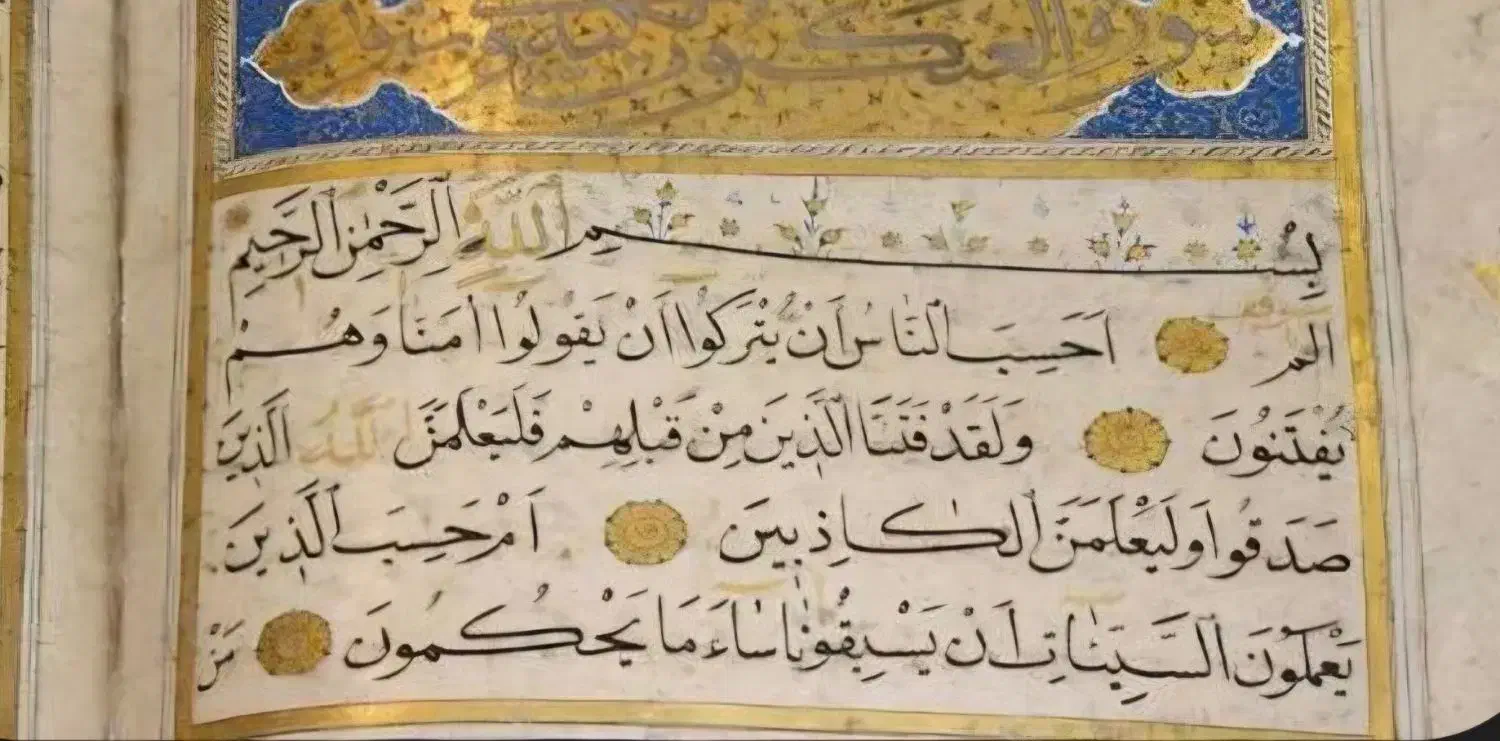 سورة العنكبوت
بِسْمِ اللّٰهِ الرَّحْمٰنِ الرَّحِيمِ
الم اَحَسِبَ النَّاسُ اَنْ يُتْرَكُوا اَنْ يَقُولُوا اٰمَنَّا وَهُمْ
يُفْتَنُونَ وَلَقَدْ فَتَنَّا الَّذِينَ مِنْ قَبْلِهِمْ فَلَيَعْلَمَنَّ اللّٰهُ الَّذِينَ
صَدَقُوا وَلَيَعْلَمَنَّ الْكَاذِبِينَ اَمْ حَسِبَ الَّذِينَ
يَعْمَلُونَ السَّيِّئَاتِ اَنْ يَسْبِقُونَا سَاءَ مَا يَحْكُمُونَ مَنْ